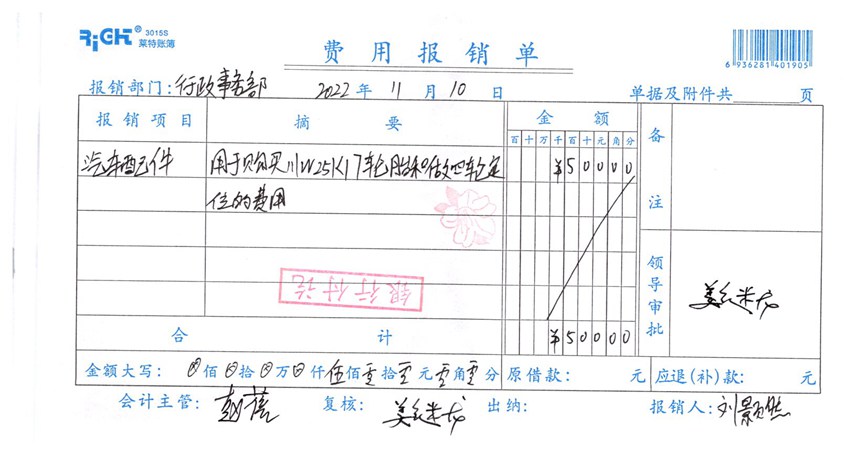 RiGHT® 3015S
莱特账簿
6 936281 401905
费用报销单
报销部门:行政事务部 2022年11月10日 单据及附件共 页
报销项目 摘要 金额 备注
百十万千百十元角分
汽车配件 用于购买川W25K17轮胎和做四轮定 ¥50000
位的费用
银行付讫
领导审批
合计 ¥50000
金额大写: 佰 拾 万 仟伍佰零拾零元零角零分 原借款: 元 应退(补)款: 元
会计主管: 复核: 出纳: 报销人:刘景然